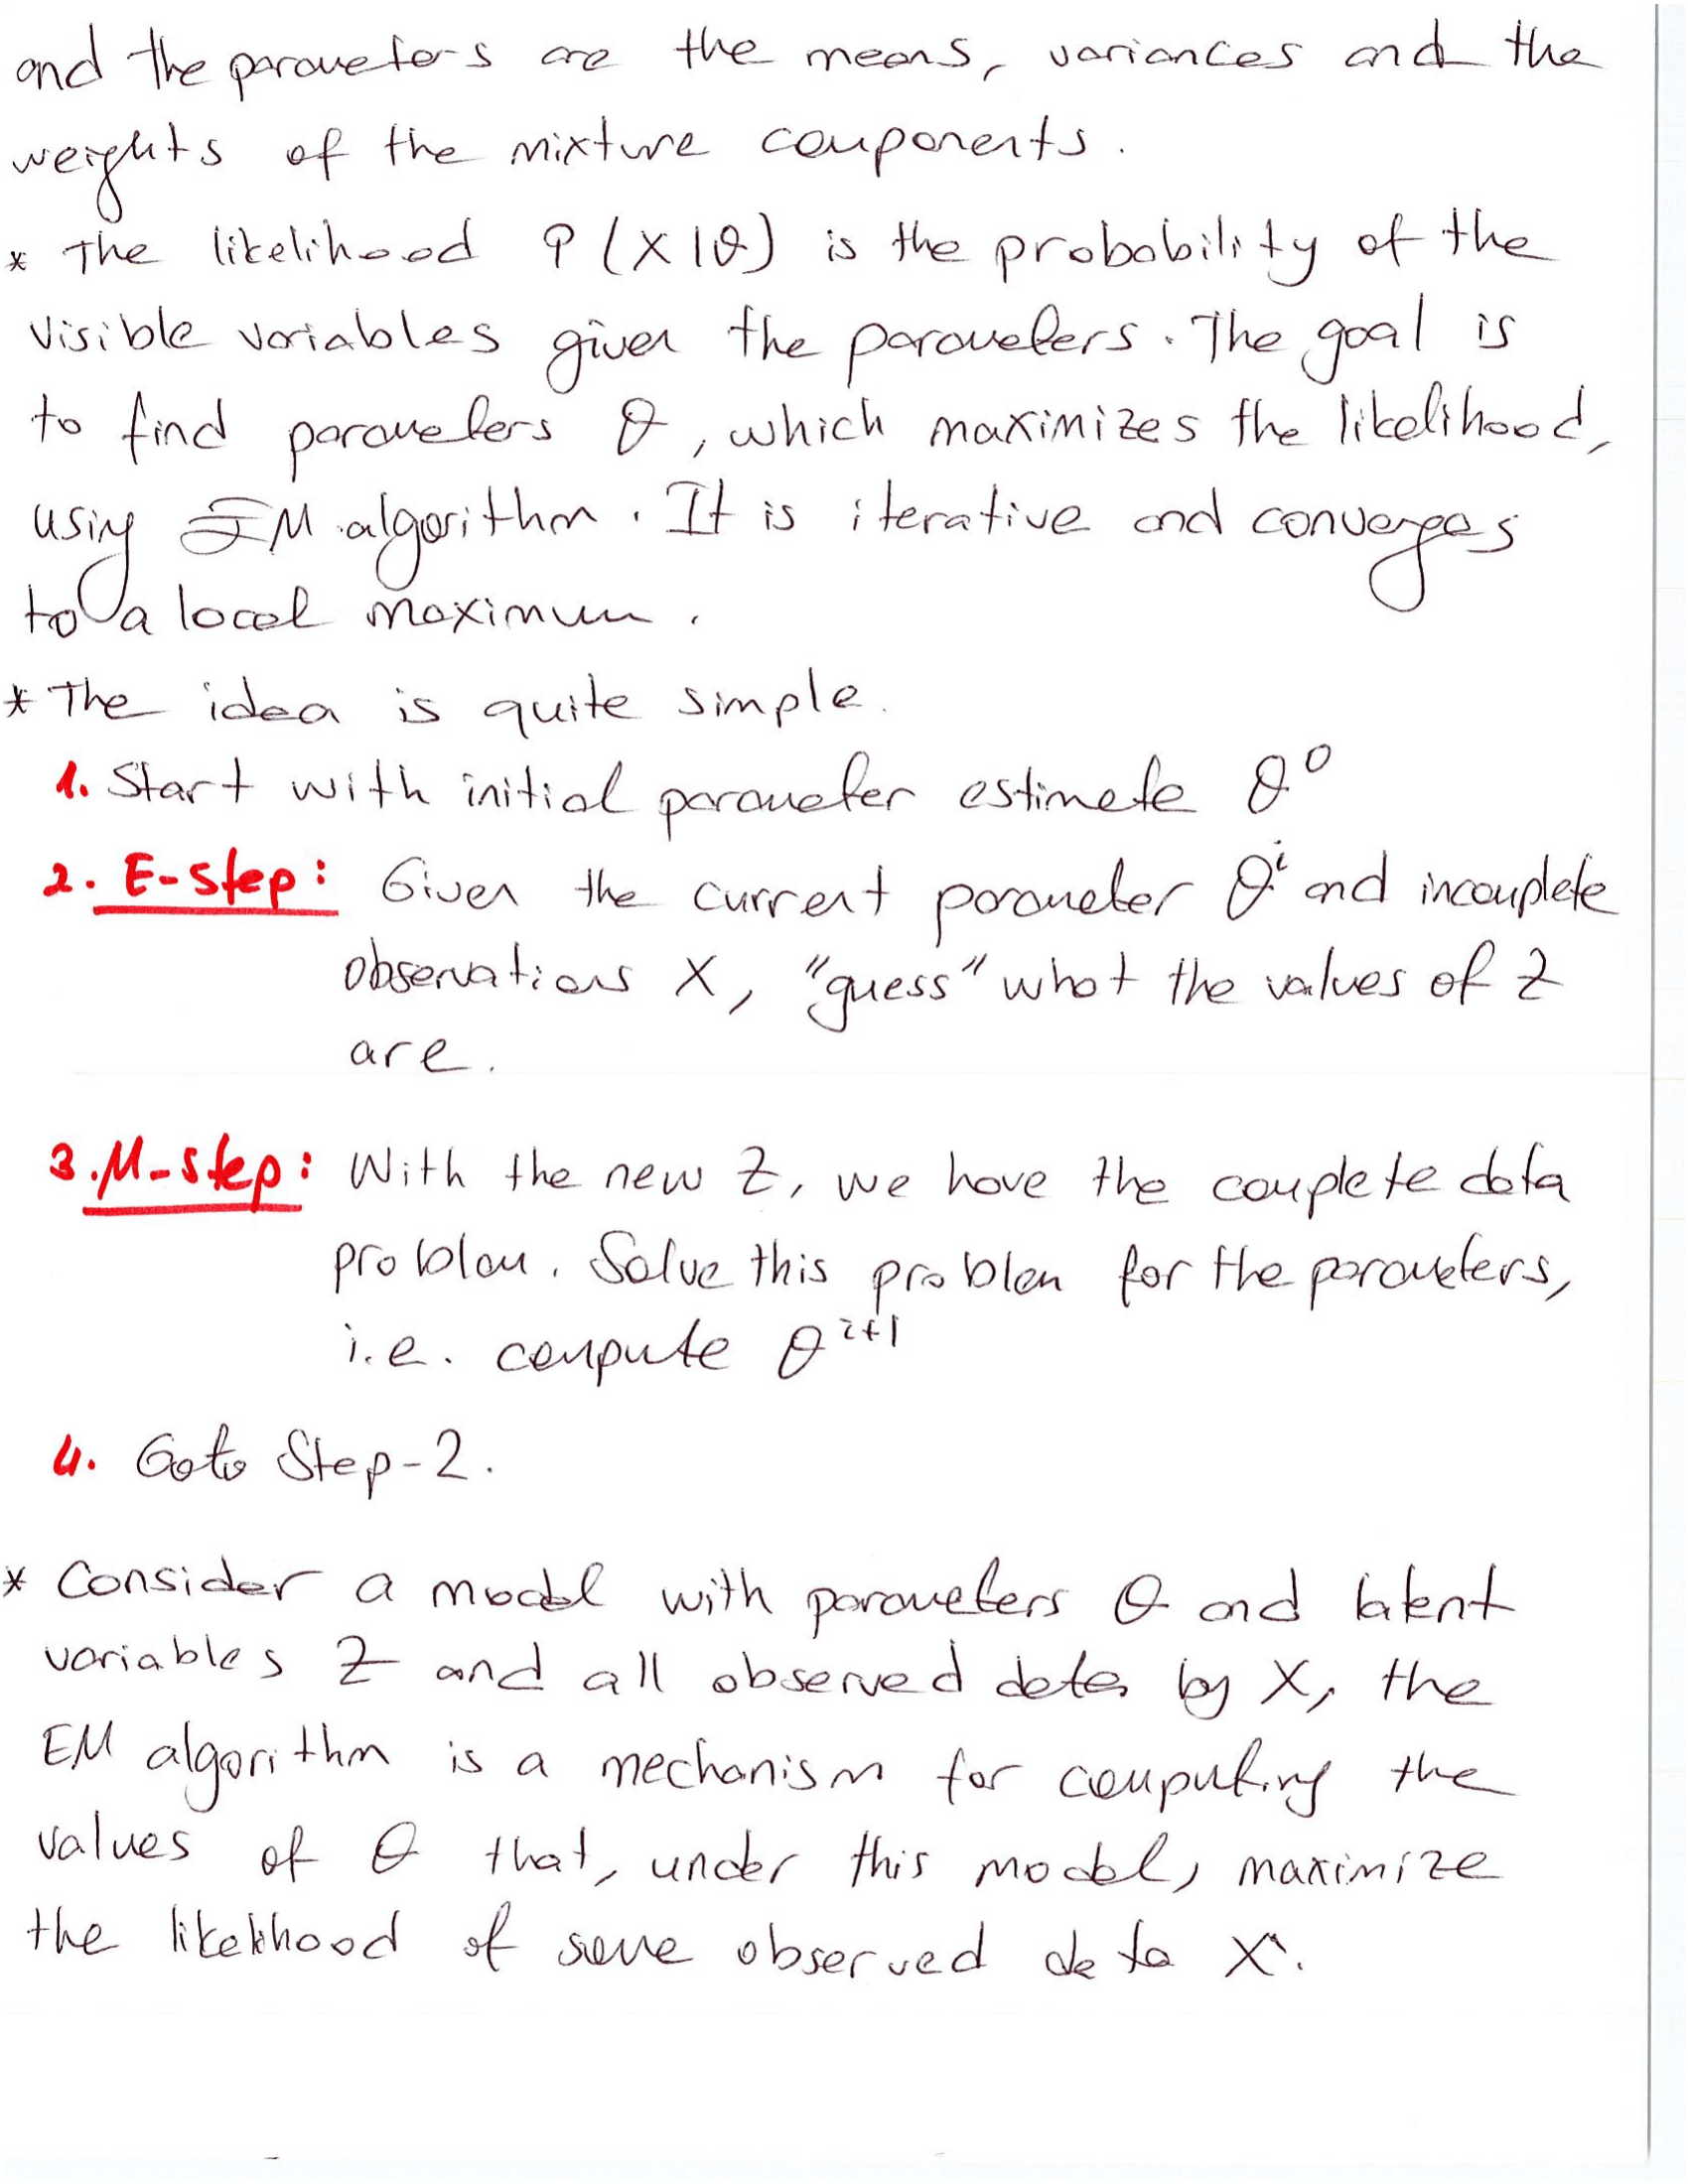 and the parameters are the means, variances and the
weights of the mixture components.
* The likelihood P(X|θ) is the probability of the
visible variables given the parameters. The goal is
to find parameters θ, which maximizes the likelihood,
using EM algorithm. It is iterative and converges
to a local maximum.
* The idea is quite simple.
1. Start with initial parameter estimate θ⁰
2. E-step: Given the current parameter θⁱ and incomplete
observations X, "guess" what the values of Z
are.
3. M-step: With the new Z, we have the complete data
problem. Solve this problem for the parameters,
i.e. compute θⁱ⁺¹
4. Goto Step-2.
* Consider a model with parameters θ and latent
variables Z and all observed data by X, the
EM algorithm is a mechanism for computing the
values of θ that, under this model, maximize
the likelihood of some observed data X.